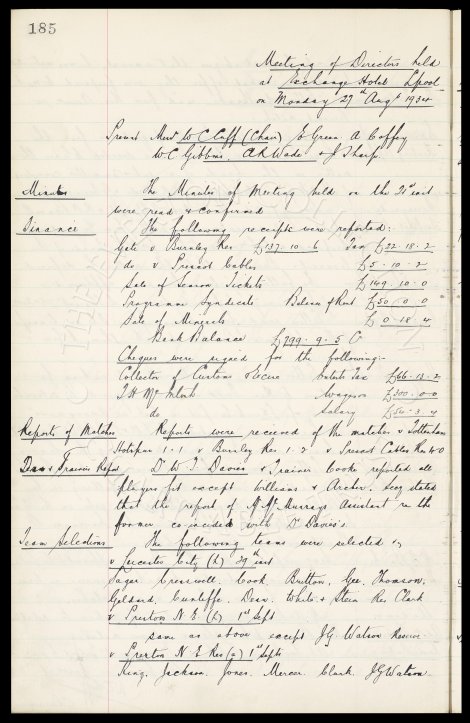 185
Meeting of Directors held
at Exchange Hotel Lpool
on Monday 27th Augt 1934
Present Messrs W C Cuff (Chair) E Green A Coffey
W C Gibbins, A R Wade & J Sharp.
Minutes The Minutes of Meeting held on the 21st inst
were read & confirmed
Finance The following receipts were reported:
Gate v Burnley Res £137. 10. 6 Tax £22. 18. 2
do v Prescot Cables £5. 10. 2
Sale of Season Tickets £149. 10. 0
Programme Syndicate Balance of Rent £50. 0. 0
Sale of Minerals £0. 18. 4
Bank Balance £799. 9. 5
Cheques were signed for the following:-
Collector of Customs & Excise Entets Tax £66. 13. 2
Wages £300. 0. 0
do Salary
Reports of Matches Reports were received of the matches v Tottenham
Hotspur 1-1 v Burnley Res 1-2 v Prescot Cables Res 4-0
& Trainers Report Dr W. J. Davies & Trainer Cooke reported all
players fit except Williams & Archer. Secy stated
that the report of Mr McMurrays Assistant on the
former co-incided with Dr Davies's
Team Selections The following teams were selected :-
v Leicester City (h) 29th inst
Sagar Cresswell. Cook. Britton, Gee, Thomson.
Geldard. Cunliffe. Dean. White & Stein Res Clark
v Preston N. E. (h) 1st Sept
same as above except J.G. Watson Reserve
v Preston N E Res (a) 1st Sept
King. Jackson. Jones. Mercer. Clark. J G Watson.